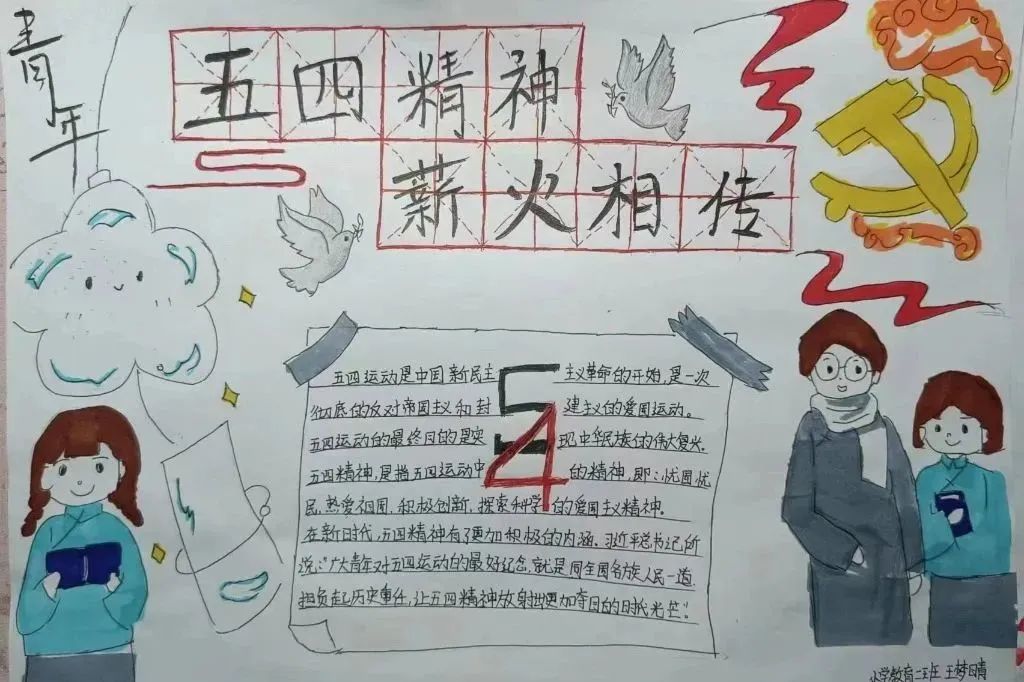 青年
五四精神
薪火相传
五四运动是中国新民主主义革命的开始,是一次
彻底的反对帝国主义和封建主义的爱国运动。
五四运动的最终目的是实现中华民族的伟大复兴。
五四精神,是指五四运动中的精神,即:忧国忧
民,热爱祖国,积极创新,探索科学的爱国主义精神。
在新时代,五四精神有了更加积极的内涵。习近平总书记所
说:"广大青年对五四运动的最好纪念,就是同全国各族人民一道
担负起历史重任,让五四精神放射出更加夺目的时代光芒!"
54
小学教育二班 王梦晴